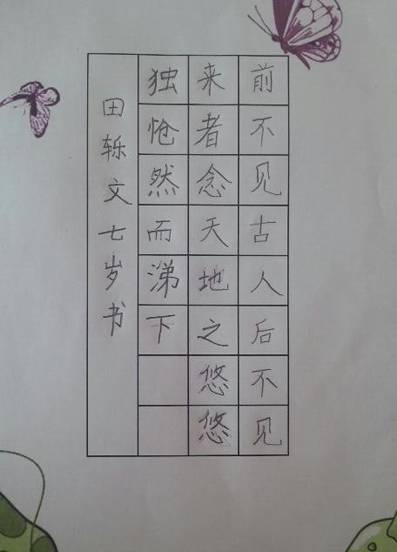 前不见古人后不见
来者念天地之悠悠
独怆然而涕下
田轹文七岁书